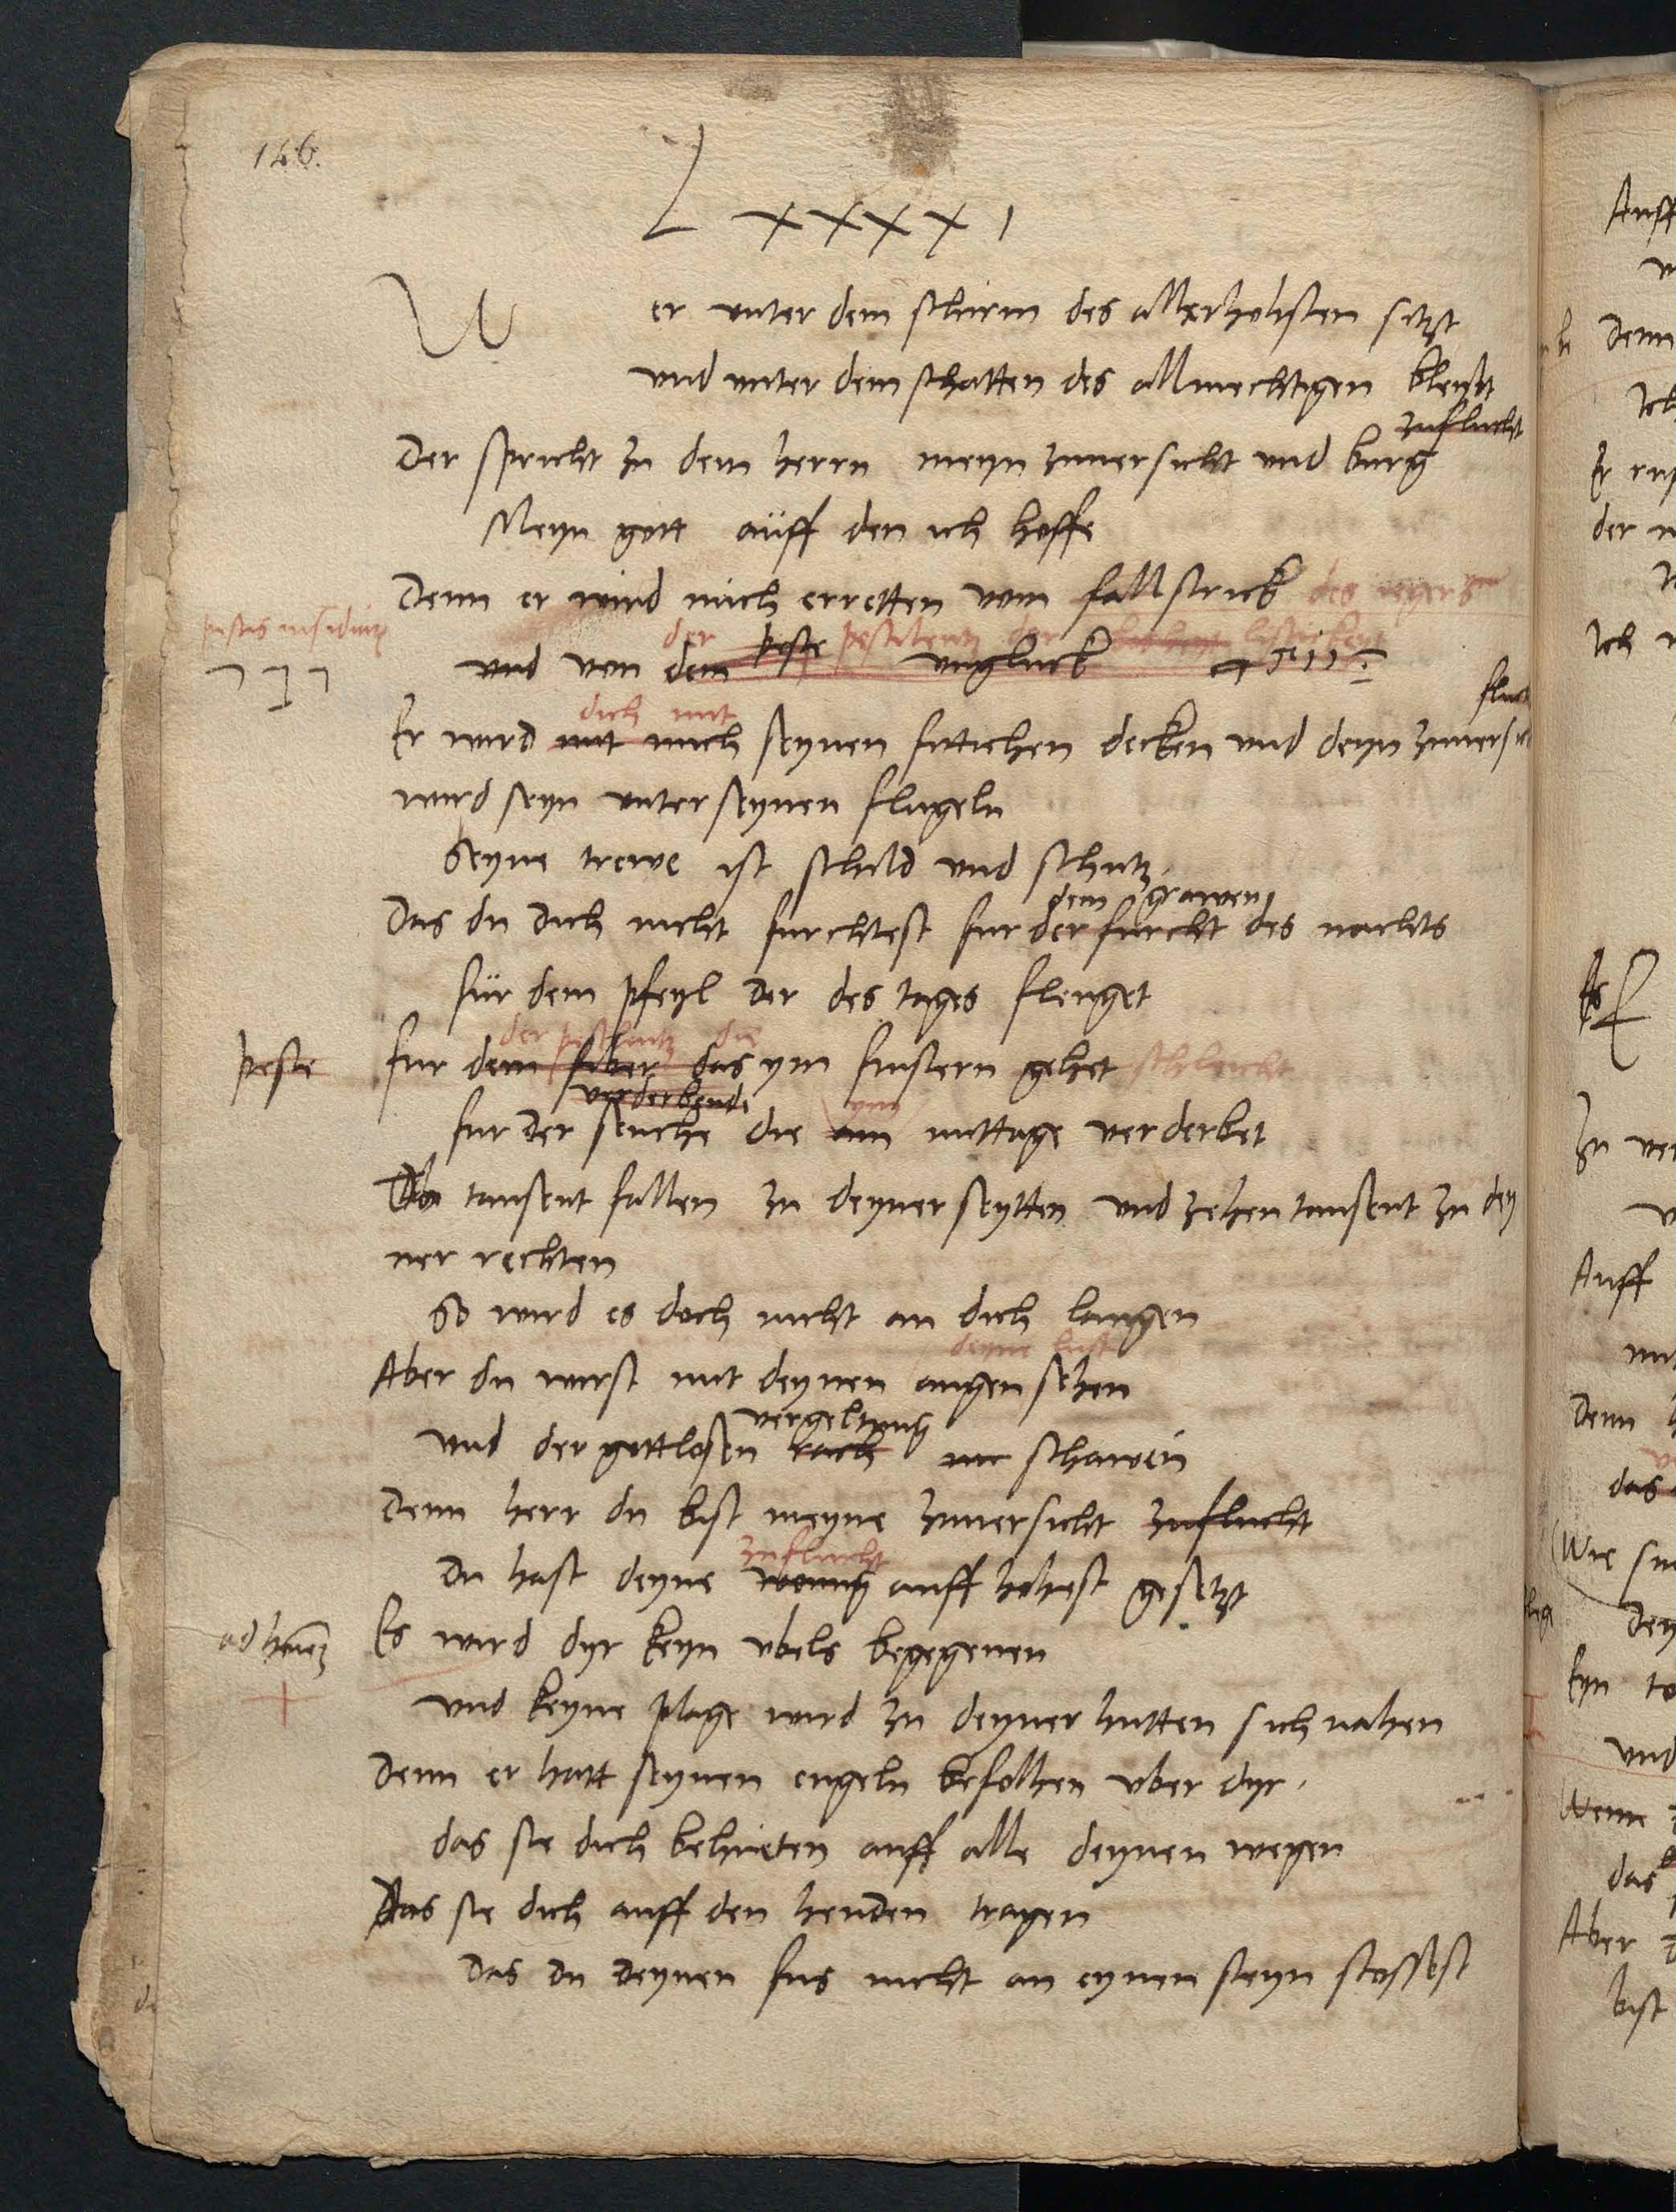 146.
Lxxxxi
Wer unter dem schirm des allerhohisten sitzt
und unter dem schatten des allmechtigen bleybt
zuflucht
Der spricht zu dem herrn meyn zuversicht und burg
Meyn gott auff den ich hoffe
Denn er wird mich erretten vom fallstrick des iegers
pestis insidiarum
der peste pestilentz der listickeyt
und von dem ungluck
דבר
dich mit
Er wird mit mich seynen fittichen decken und deyn zuversicht
wird seyn unter seynen flugeln
Seyne trewe ist schild und schutz
dem grawen
Das du dich nicht furchtest fur der furcht des nachts
fur dem pfeyl der des tages fleuget
der pestilentz die
peste fur dem fiber das ym finstern gehet schleicht
verderbende ym
fur der seuche die am mittage verderbet
Ob tausent fallen zu deyner seytten und zehen tausent zu dey
ner rechten
So wird es doch nicht an dich langen
deyne lust
Aber du wirst mit deynen augen sehen
vergeltung
und der gottlosen rach schawen
Denn herr du bist meyne zuversicht zuflucht
zuflucht
Du hast deyne wonung auff hohest gesetzt
Es wird dyr keyn ubels begegenen
und keyne plage wird zu deyner hutten sich nahen
Denn er hatt seynen engeln befolhen uber dyr
das sie dich behueten auff alle deynen wegen
Das sie dich auff den henden tragen
Das du deynen fus nicht an eynen steyn stossest
Auff
Denn
Ich
Er
der
Ich
zu
Auff
Denn
das
Wie
Dey
Eyn
und
Wenn
das
Aber
bist